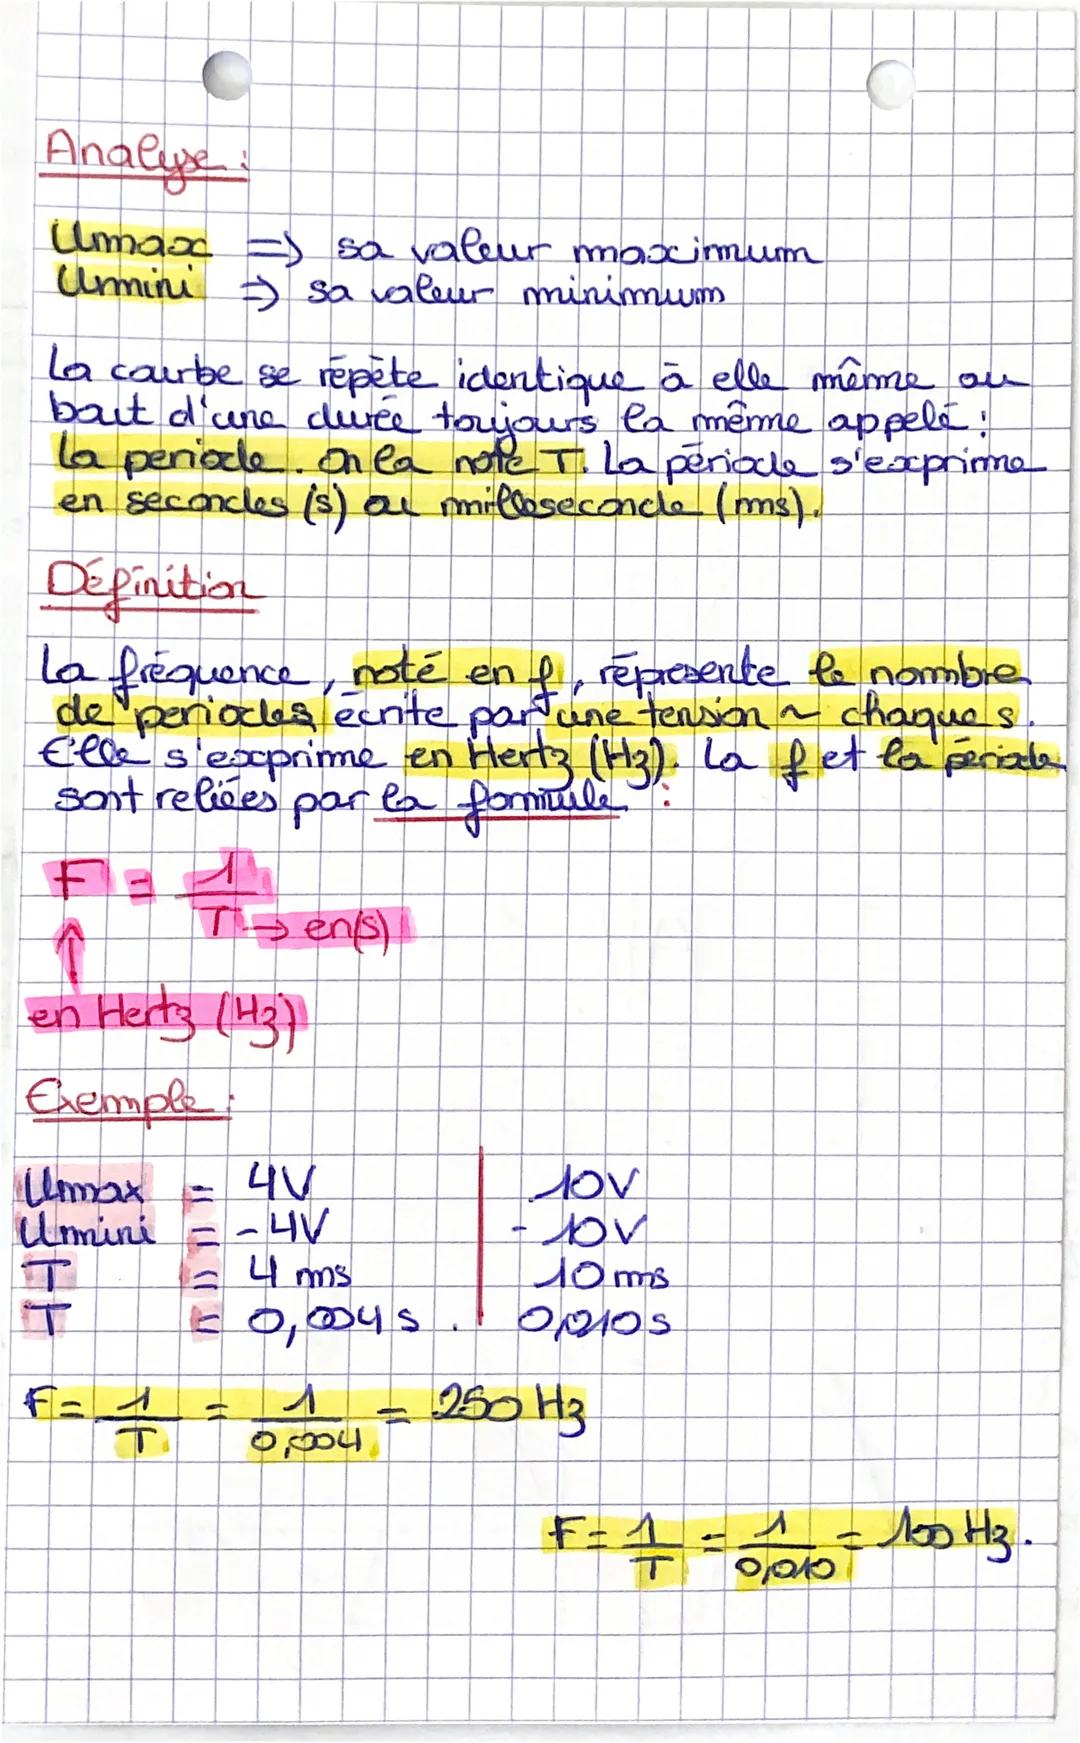 Analyse :
Umax => sa valeur maximum
Umini => sa valeur minimum
La courbe se répète identique à elle même au
bout d'une durée toujours la même appelé :
la periode. On la note T. La période s'exprime
en secondes (s) ou milliseconde (ms).
Définition
La fréquence, noté en f, répresente le nombre
de periodes écrite par une tension ~ chaque s.
Elle s'exprime en Hertz (Hz). La f et la période
sont reliées par la formule :
F = 1
T → en(s)
↑
en Hertz (Hz)
Exemple :
Umax = 4V | 10V
Umini = -4V | -10V
T = 4 ms | 10 ms
T = 0,004 s. | 0,010 s
F = 1/T = 1/0,004 = 250 Hz
F = 1/T = 1/0,010 = 100 Hz.